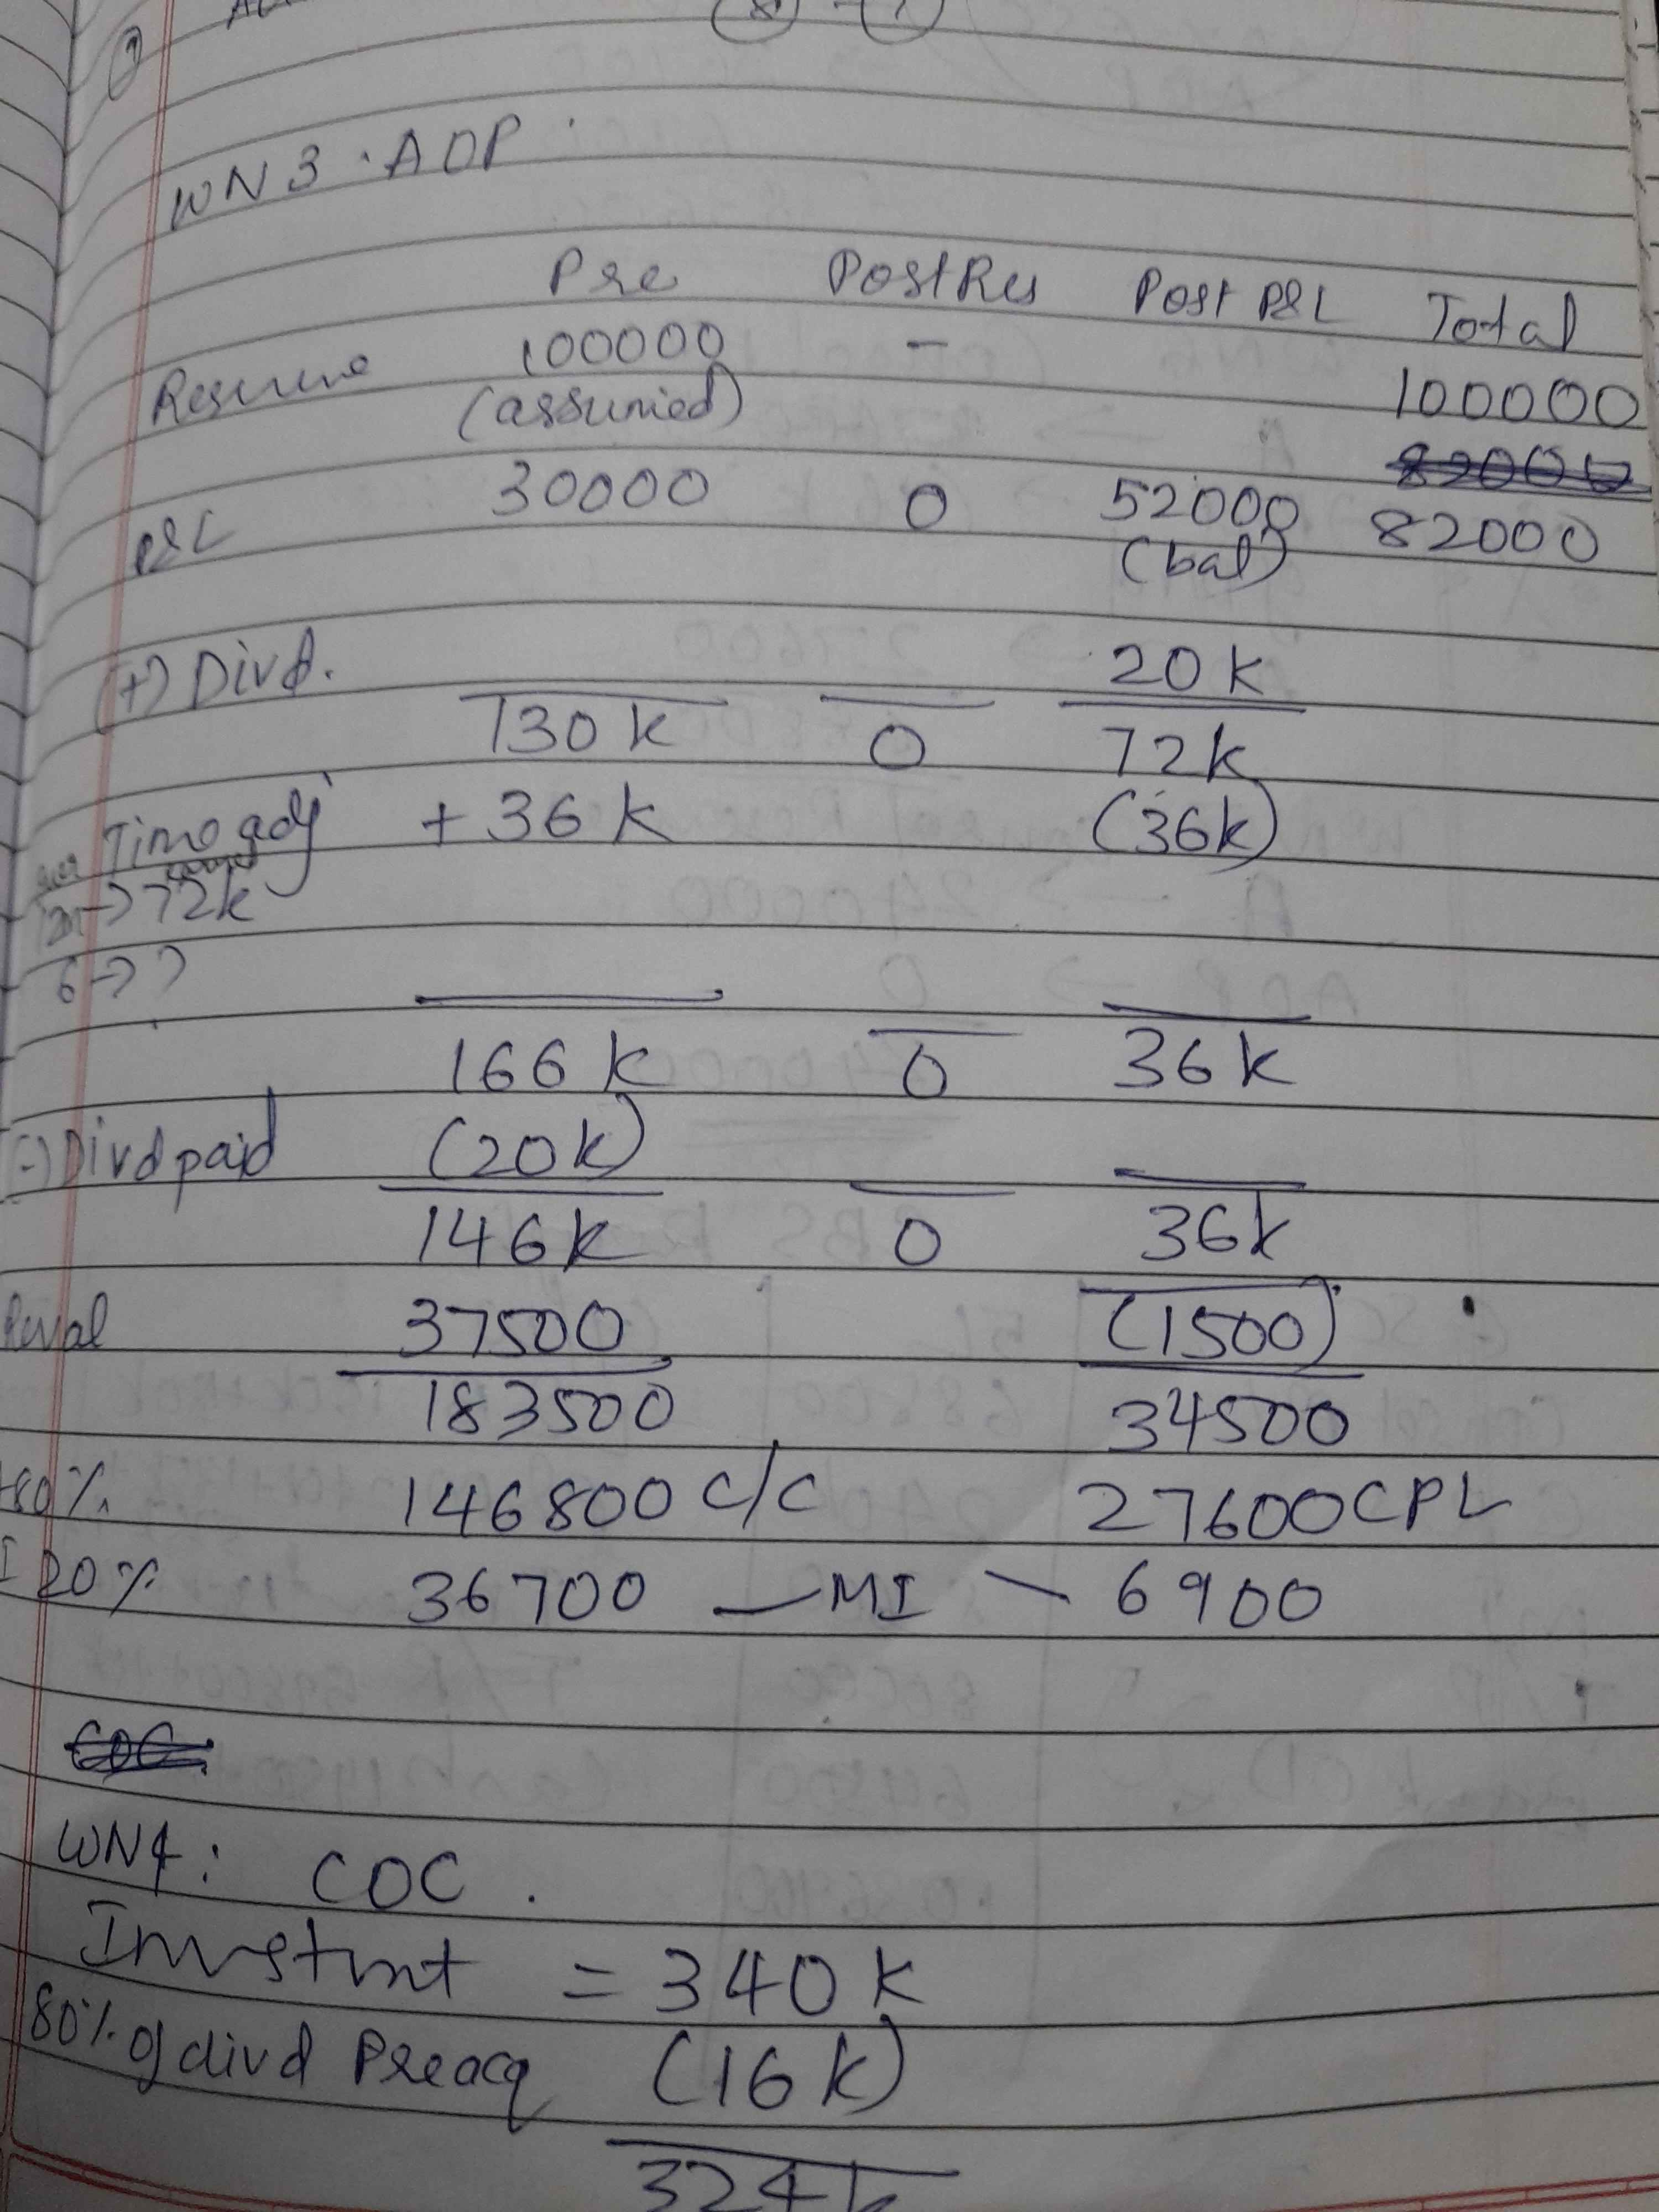 WN 3 . AOP
Pre Post Res Post P&L Total
Reserve 100000 - 100000
(assumed)
82000
P&L 30000 0 52000 82000
(bal)
(+) Divd. 20k
130k 0 72k
Time adj +36k (36k)
→72k
6→?
166k 0 36k
(-) Divd paid (20k)
146k 0 36k
Reval 37500 (1500)
183500 34500
80% 146800 C/C 27600 CPL
20% 36700 — MI — 6900
COC
WN4: COC.
Invstmt = 340k
80% of divd Preacq (16k)
324k